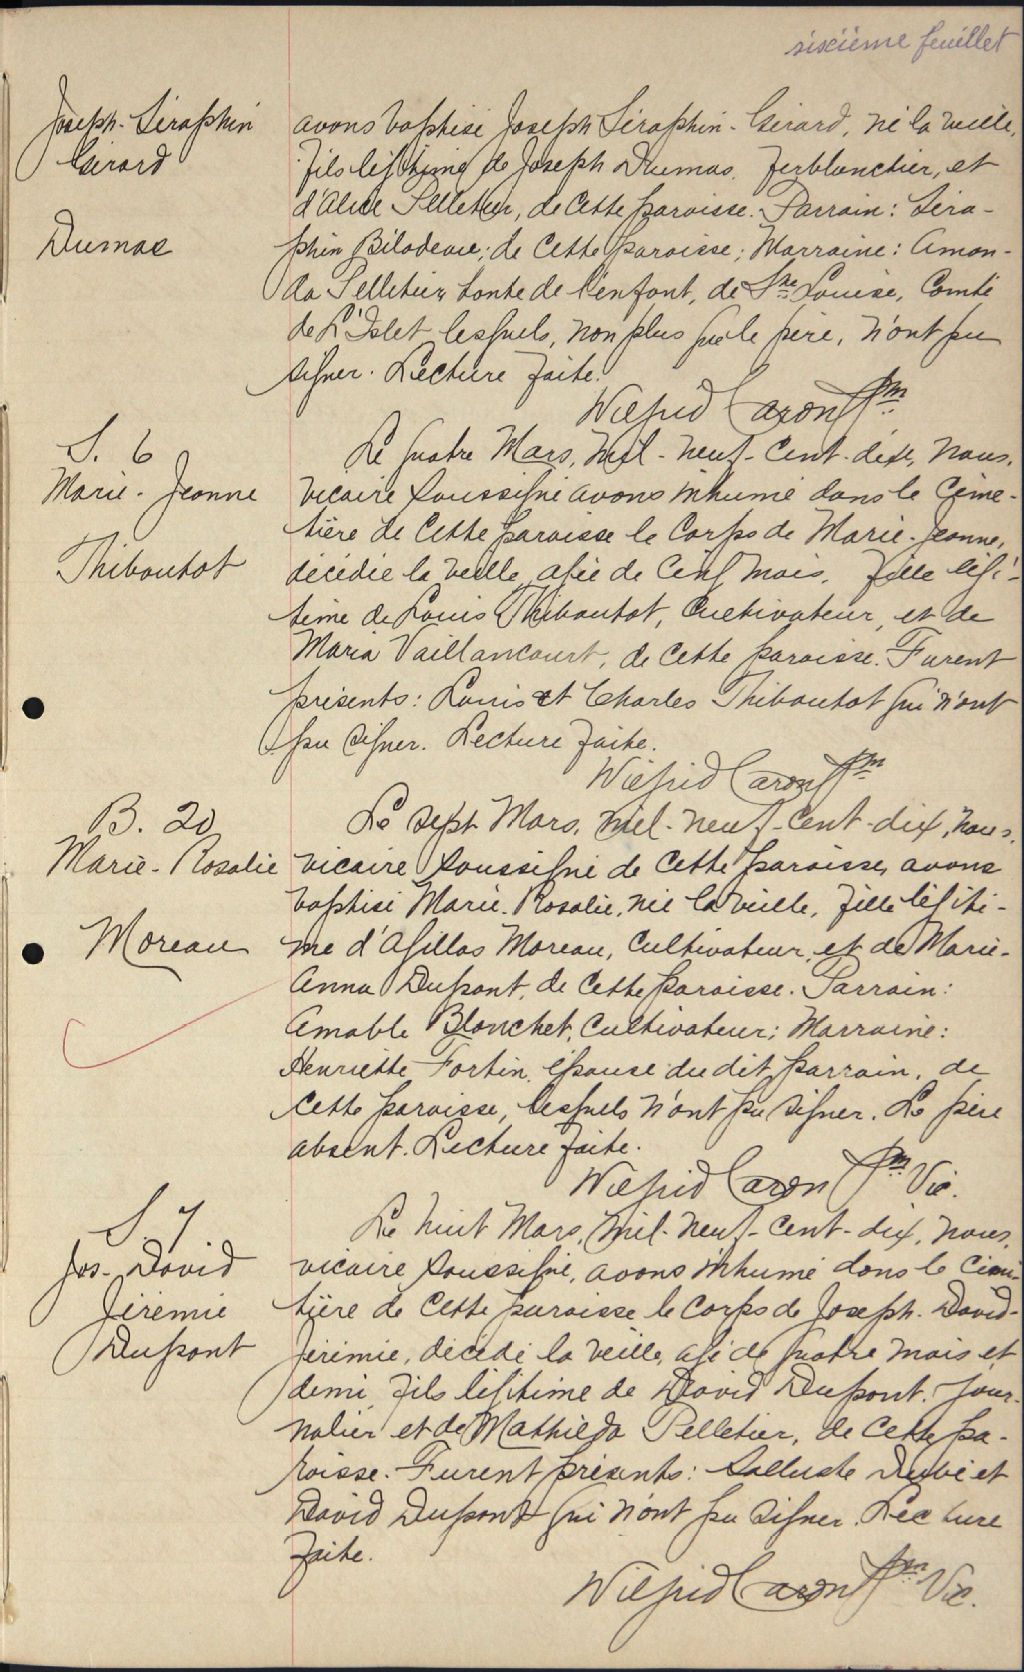 sixième feuillet
Joseph-Séraphin
Gérard
Dumas
avons baptisé Joseph Séraphin-Gérard, né la veille,
fils légitime de Joseph Dumas, ferblantier, et
d'Alice Pelletier, de cette paroisse. Parrain: Séra-
phin Bilodeau, de cette paroisse; Marraine: Aman-
da Pelletier, tante de l'enfant, de Ste Louise, Comté
de L'Islet lesquels, non plus que le père, n'ont pu
signer. Lecture faite.
Wilfrid Caron Ptre
S. 6
Marie-Jeanne
Thiboutot
Le quatre Mars, mil-neuf-cent-dix, nous,
vicaire soussigné avons inhumé dans le cime-
tière de cette paroisse le corps de Marie-Jeanne,
décédée la veille, agée de cinq mois, fille légi-
time de Louis Thiboutot, cultivateur, et de
Maria Vaillancourt, de cette paroisse. Furent
présents: Louis et Charles Thiboutot qui n'ont
pu signer. Lecture faite.
Wilfrid Caron Ptre
B. 20
Marie-Rosalie
Moreau
Le sept Mars, mil-neuf-cent-dix, nous,
vicaire soussigné de cette paroisse, avons
baptisé Marie-Rosalie, née la veille, fille légiti-
me d'Agillas Moreau, cultivateur, et de Marie-
Anna Dupont, de cette paroisse. Parrain:
Amable Blanchet, cultivateur; Marraine:
Henriette Fortin, épouse du dit parrain, de
cette paroisse, lesquels n'ont pu signer. Le père
absent. Lecture faite.
Wilfrid Caron Ptre Vic.
S. 7
Jos-David
Jérémie
Dupont
Le huit Mars, mil-neuf-cent-dix, nous,
vicaire soussigné, avons inhumé dans le cime-
tière de cette paroisse le corps de Joseph-David-
Jérémie, décédé la veille, agé de quatre mois et
demi, fils légitime de David Dupont, jour-
nalier et de Mathilda Pelletier, de cette pa-
roisse. Furent présents: Salluste Dubé et
David Dupont qui n'ont pu signer. Lecture
faite.
Wilfrid Caron Ptre Vic.